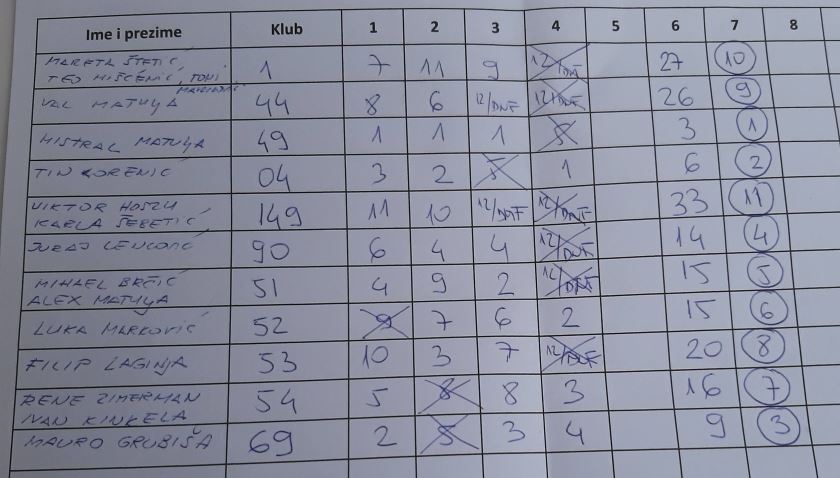 Ime i prezime Klub 1 2 3 4 5 6 7 8
MARETA ŠTETIĆ,
TEO MIŠČENIĆ, TONI 1 7 11 9 12/DNF 27 10
VAL MATUJA 44 8 6 12/DNF 12/DNF 26 9
MISTRAL MATUJA 49 1 1 1 5 3 1
TIN KORENIĆ 04 3 2 5 1 6 2
VIKTOR HOSZU
KARLA ŠEBETIĆ 149 11 10 12/DNF 12/DNF 33 11
JURAJ 90 6 4 4 12/DNF 14 4
MIHAEL BRČIĆ
ALEX MATUJA 51 4 9 2 12/DNF 15 5
LUKA MARKOVIĆ 52 9 7 6 2 15 6
FILIP LAGINJA 53 10 3 7 12/DNF 20 8
RENE ZIMERMAN
IVAN KINKELA 54 5 8 8 3 16 7
MAURO GRUBIŠA 69 2 5 3 4 9 3